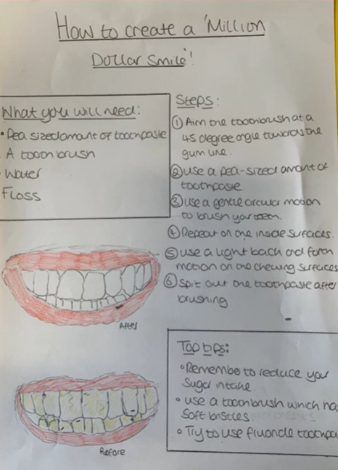 How to create a 'Million
Dollar Smile'!
What you will need:
• Pea sized amount of toothpaste
A toothbrush
• Water
Floss
Steps:
① Aim the toothbrush at a
45 degree angle towards the
gum line.
② Use a pea-sized amount of
toothpaste
③ Use a gentle circular motion
to brush your teeth.
④ Repeat on the inside surfaces.
⑤ Use a light back and forth
motion on the chewing surfaces
⑥ Spit out the toothpaste after
brushing
After
Before
Top tips:
• Remember to reduce your
sugar intake
• use a toothbrush which ha
soft bristles
• Try to use fluoride toothpa